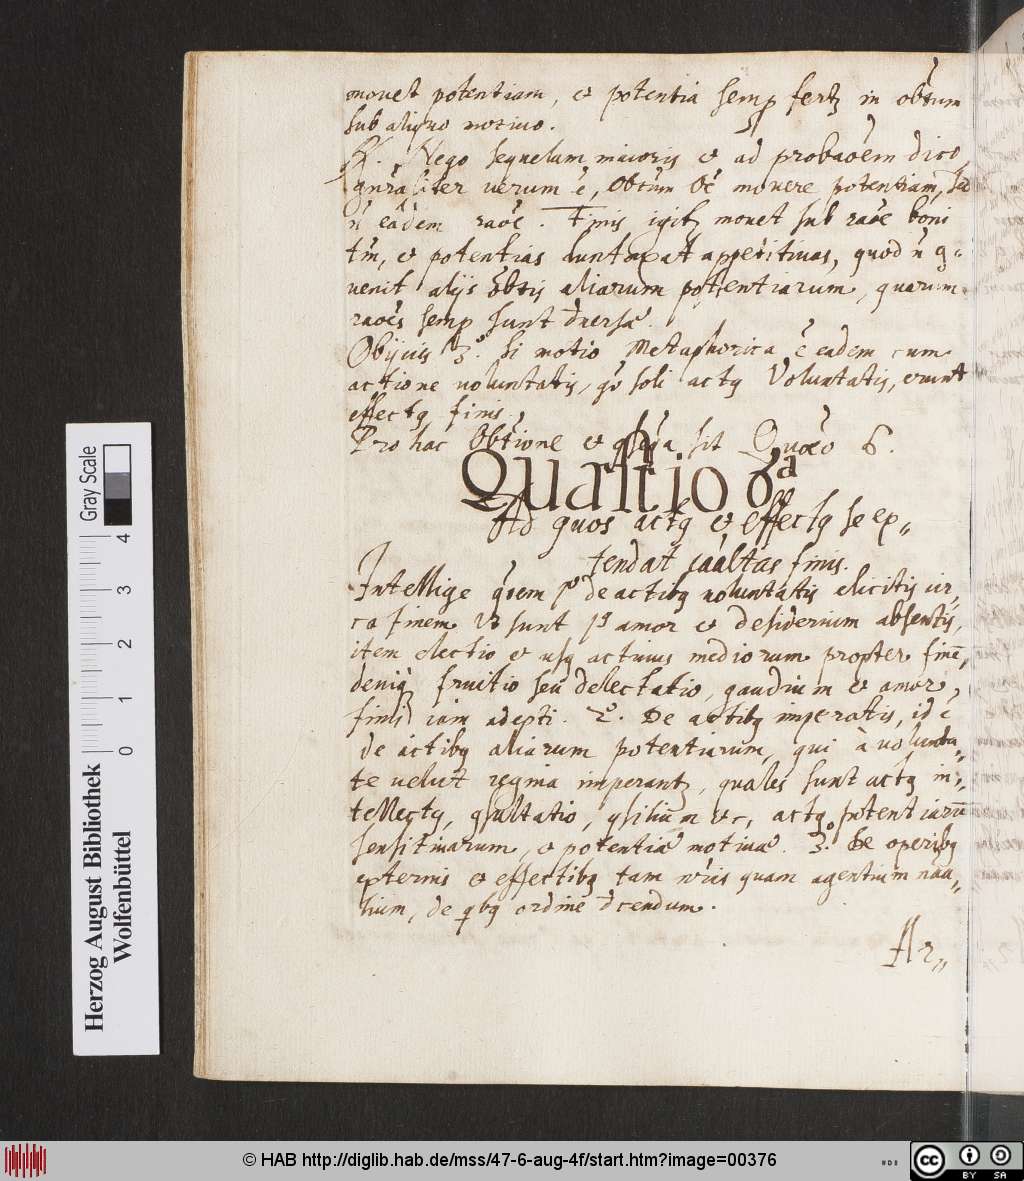 mouet potentiam, et potentia semp fertʒ in obtum
sub aliquo motiuo.
R. Nego sequelam maioris et ad probaõem dico,
gnr̃aliter uerum ẽ, obtũm oẽ mouere potentiam, sed
ñ eãdem raõe. Finis igitʒ mouet sub raõe boni
tm̃, et potentias duntaxat appetitiuas, quod ñ 9-
uenit alijs obtis aliarum potentiarum, quarum
raões semp sunt diuersæ.
Obijcies 3º. si motio Metaphorica ẽ eadem cum
actione uoluntatis, gº soli act9 Voluntatis, erunt
effect9 finis.
Pro hac obtione et sit Quæo 6.
Quæstio 6ª
Ad quos act9 et effect9 se ex„
tendat caũltas finis.
Intellige qõem pº de actib9 uoluntatis elicitis cir„
ca finem sunt amor et desiderium absentis,
item electio et us9 actiuus mediorum propter finẽ,
deniq̃ fruitio seu delectatio, gaudium et amor,
finis iam adepti. 2º. De actib9 imperatis, id ẽ
de actib9 aliarum potentiarum, qui à uolunta„
te uelut regina imperantʒ, quales sunt act9 in„
tellect9, 9sultatio, 9silium etc, act9 potentiarũ
sensitiuarum, et potentiæ motiuæ. 3º. De operib9
externis et effectib9 tam nr̃is quam agentium natu„
lium, de qib9 ordine dicendum.
Ar„
Herzog August Bibliothek
Wolfenbüttel
0 1 2 3 4
Gray Scale
© HAB http://diglib.hab.de/mss/47-6-aug-4f/start.htm?image=00376
cc BY SA